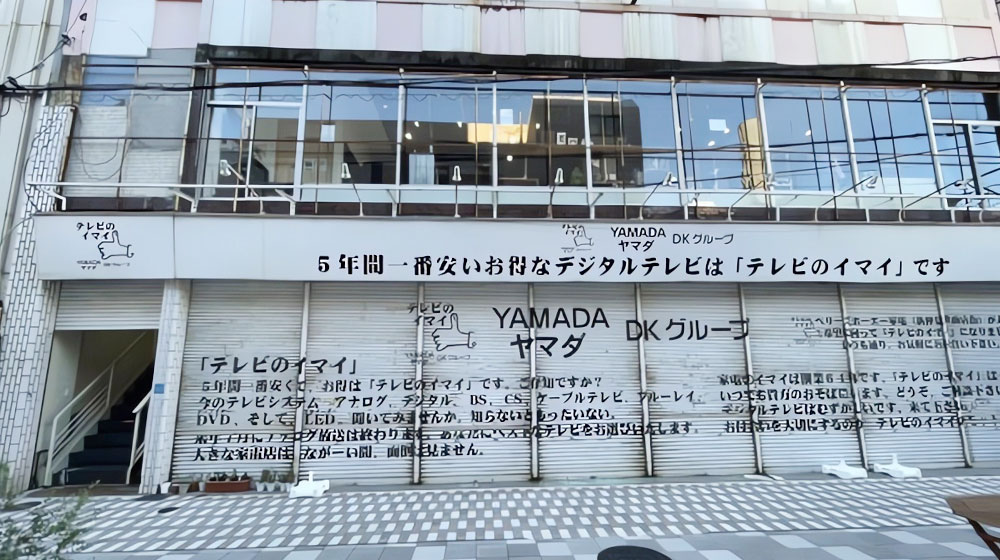 テレビの
イマイ
YAMADA
ヤマダ
DKグループ
テレビの
イマイ
YAMADA
ヤマダ
DKグループ
5年間一番安いお得なデジタルテレビは「テレビのイマイ」です
テレビの
イマイ
YAMADA
ヤマダ
DKグループ
YAMADA
ヤマダ
DKグループ
「テレビのイマイ」
5年間一番安くて、お得は「テレビのイマイ」です。ご存知ですか?
今のテレビシステム アナログ、デジタル、BS、CS、ケーブルテレビ、ブルーレイ、
DVD、そして、LED、聞いてみませんか。知らないともったいない。
来年7月にアナログ放送は終わります。あなたにベストなテレビをお選びいたします。
大きな家電店は、ながーい間、面倒は見ません。
「テレビのイマイ」になりま
家電のイマイは創業64年です。「テレビのイマイ」は
いつでも貴方のおそばにいます。どうぞ、ご相談下さい
デジタルテレビはむずかしいです。来て下さい
お住まいを大切にするのが テレビのイマイ